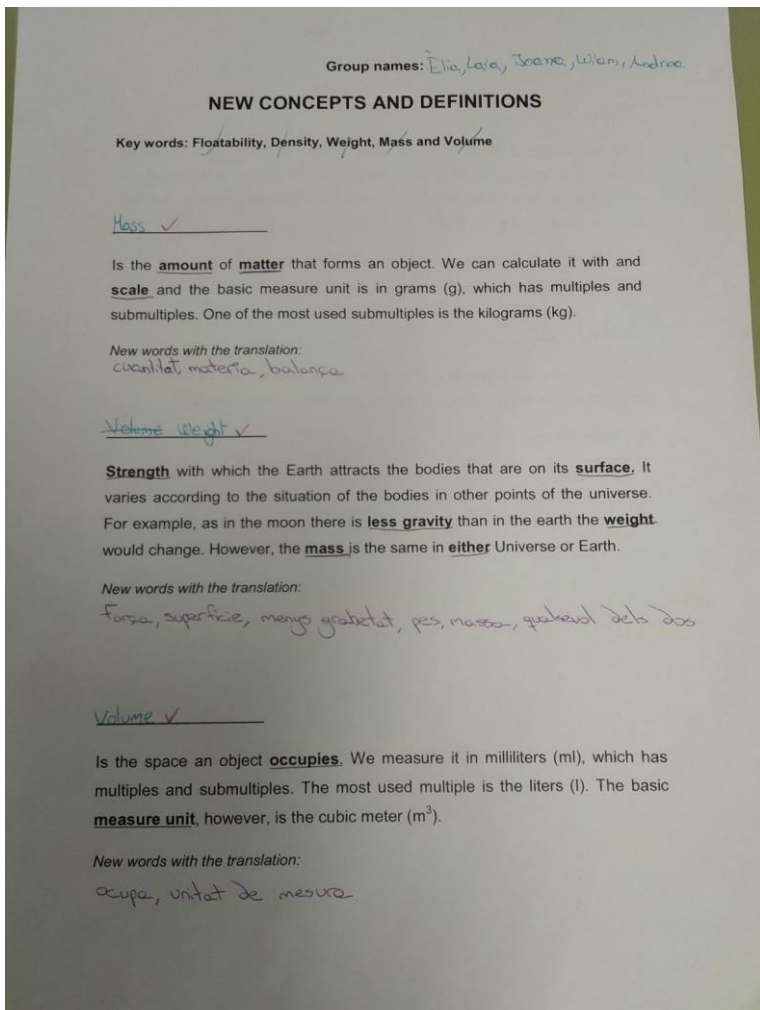 Group names: Èlia, Laia, Joana, Wiam, Andrea
NEW CONCEPTS AND DEFINITIONS
Key words: Floatability, Density, Weight, Mass and Volume
Mass ✓
Is the amount of matter that forms an object. We can calculate it with and
scale and the basic measure unit is in grams (g), which has multiples and
submultiples. One of the most used submultiples is the kilograms (kg).
New words with the translation:
cuantitat, materia, balança
Volume Weight ✓
Strength with which the Earth attracts the bodies that are on its surface. It
varies according to the situation of the bodies in other points of the universe.
For example, as in the moon there is less gravity than in the earth the weight
would change. However, the mass is the same in either Universe or Earth.
New words with the translation:
força, superficie, menys grabetat, pes, massa, qualsevol dels dos
Volume ✓
Is the space an object occupies. We measure it in milliliters (ml), which has
multiples and submultiples. The most used multiple is the liters (l). The basic
measure unit, however, is the cubic meter (m³).
New words with the translation:
ocupa, unitat de mesura